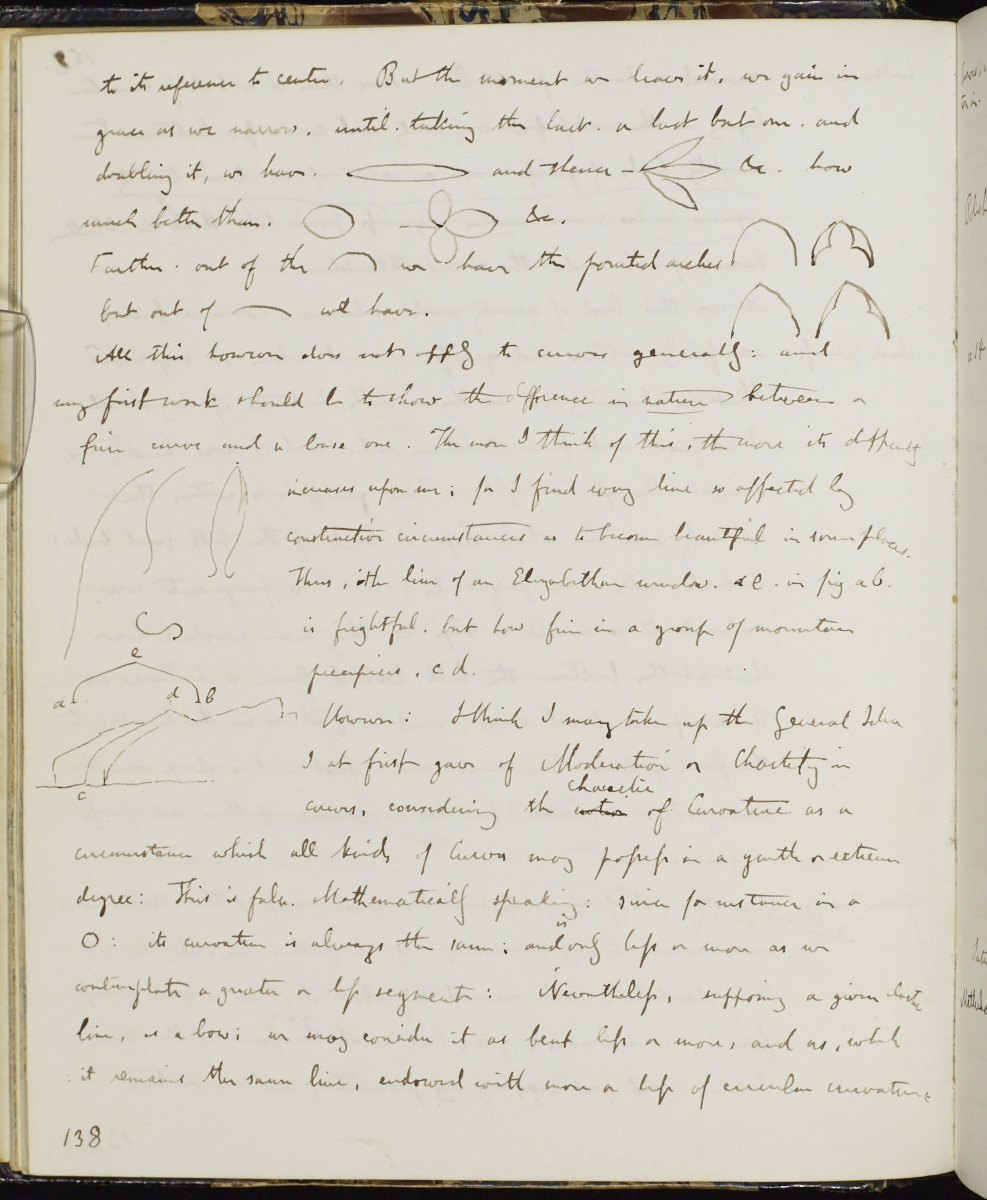 to its reference to center. But the moment we leave it, we gain in
grace as we narrow. until. taking the last. or last but one. and
doubling it, we have. and thence &c. how
much better than. &c.
Farther. out of the we have the pointed arches
but out of we have.
All this however does not apply to curves generally: and
my first work should be to show the difference in nature between a
fine curve and a base one. The more I think of this, the more its difficulty
increases upon me; for I find every line so affected by
constructive circumstances as to become beautiful in some places.
Thus, the line of an Elizabethan window. a e. in fig a b.
is frightful. but how fine in a group of mountain
precipices. c d.
e
a d b
c
However: I think I may take up the General Idea
I at first gave of Moderation or Chastity in
character
curves, considering the notion of Curvature as a
circumstance which all kinds of Curves may possess in a gentle or extreme
degree: This is false. Mathematically speaking: since for instance in a
is
O: its curvature is always the same; and only less or more as we
contemplate a greater or less segment: Nevertheless, supposing a given elastic
line, as a bow; we may consider it as bent less or more, and as, while
it remains the same line, endowed with more or less of circular curvature.
138